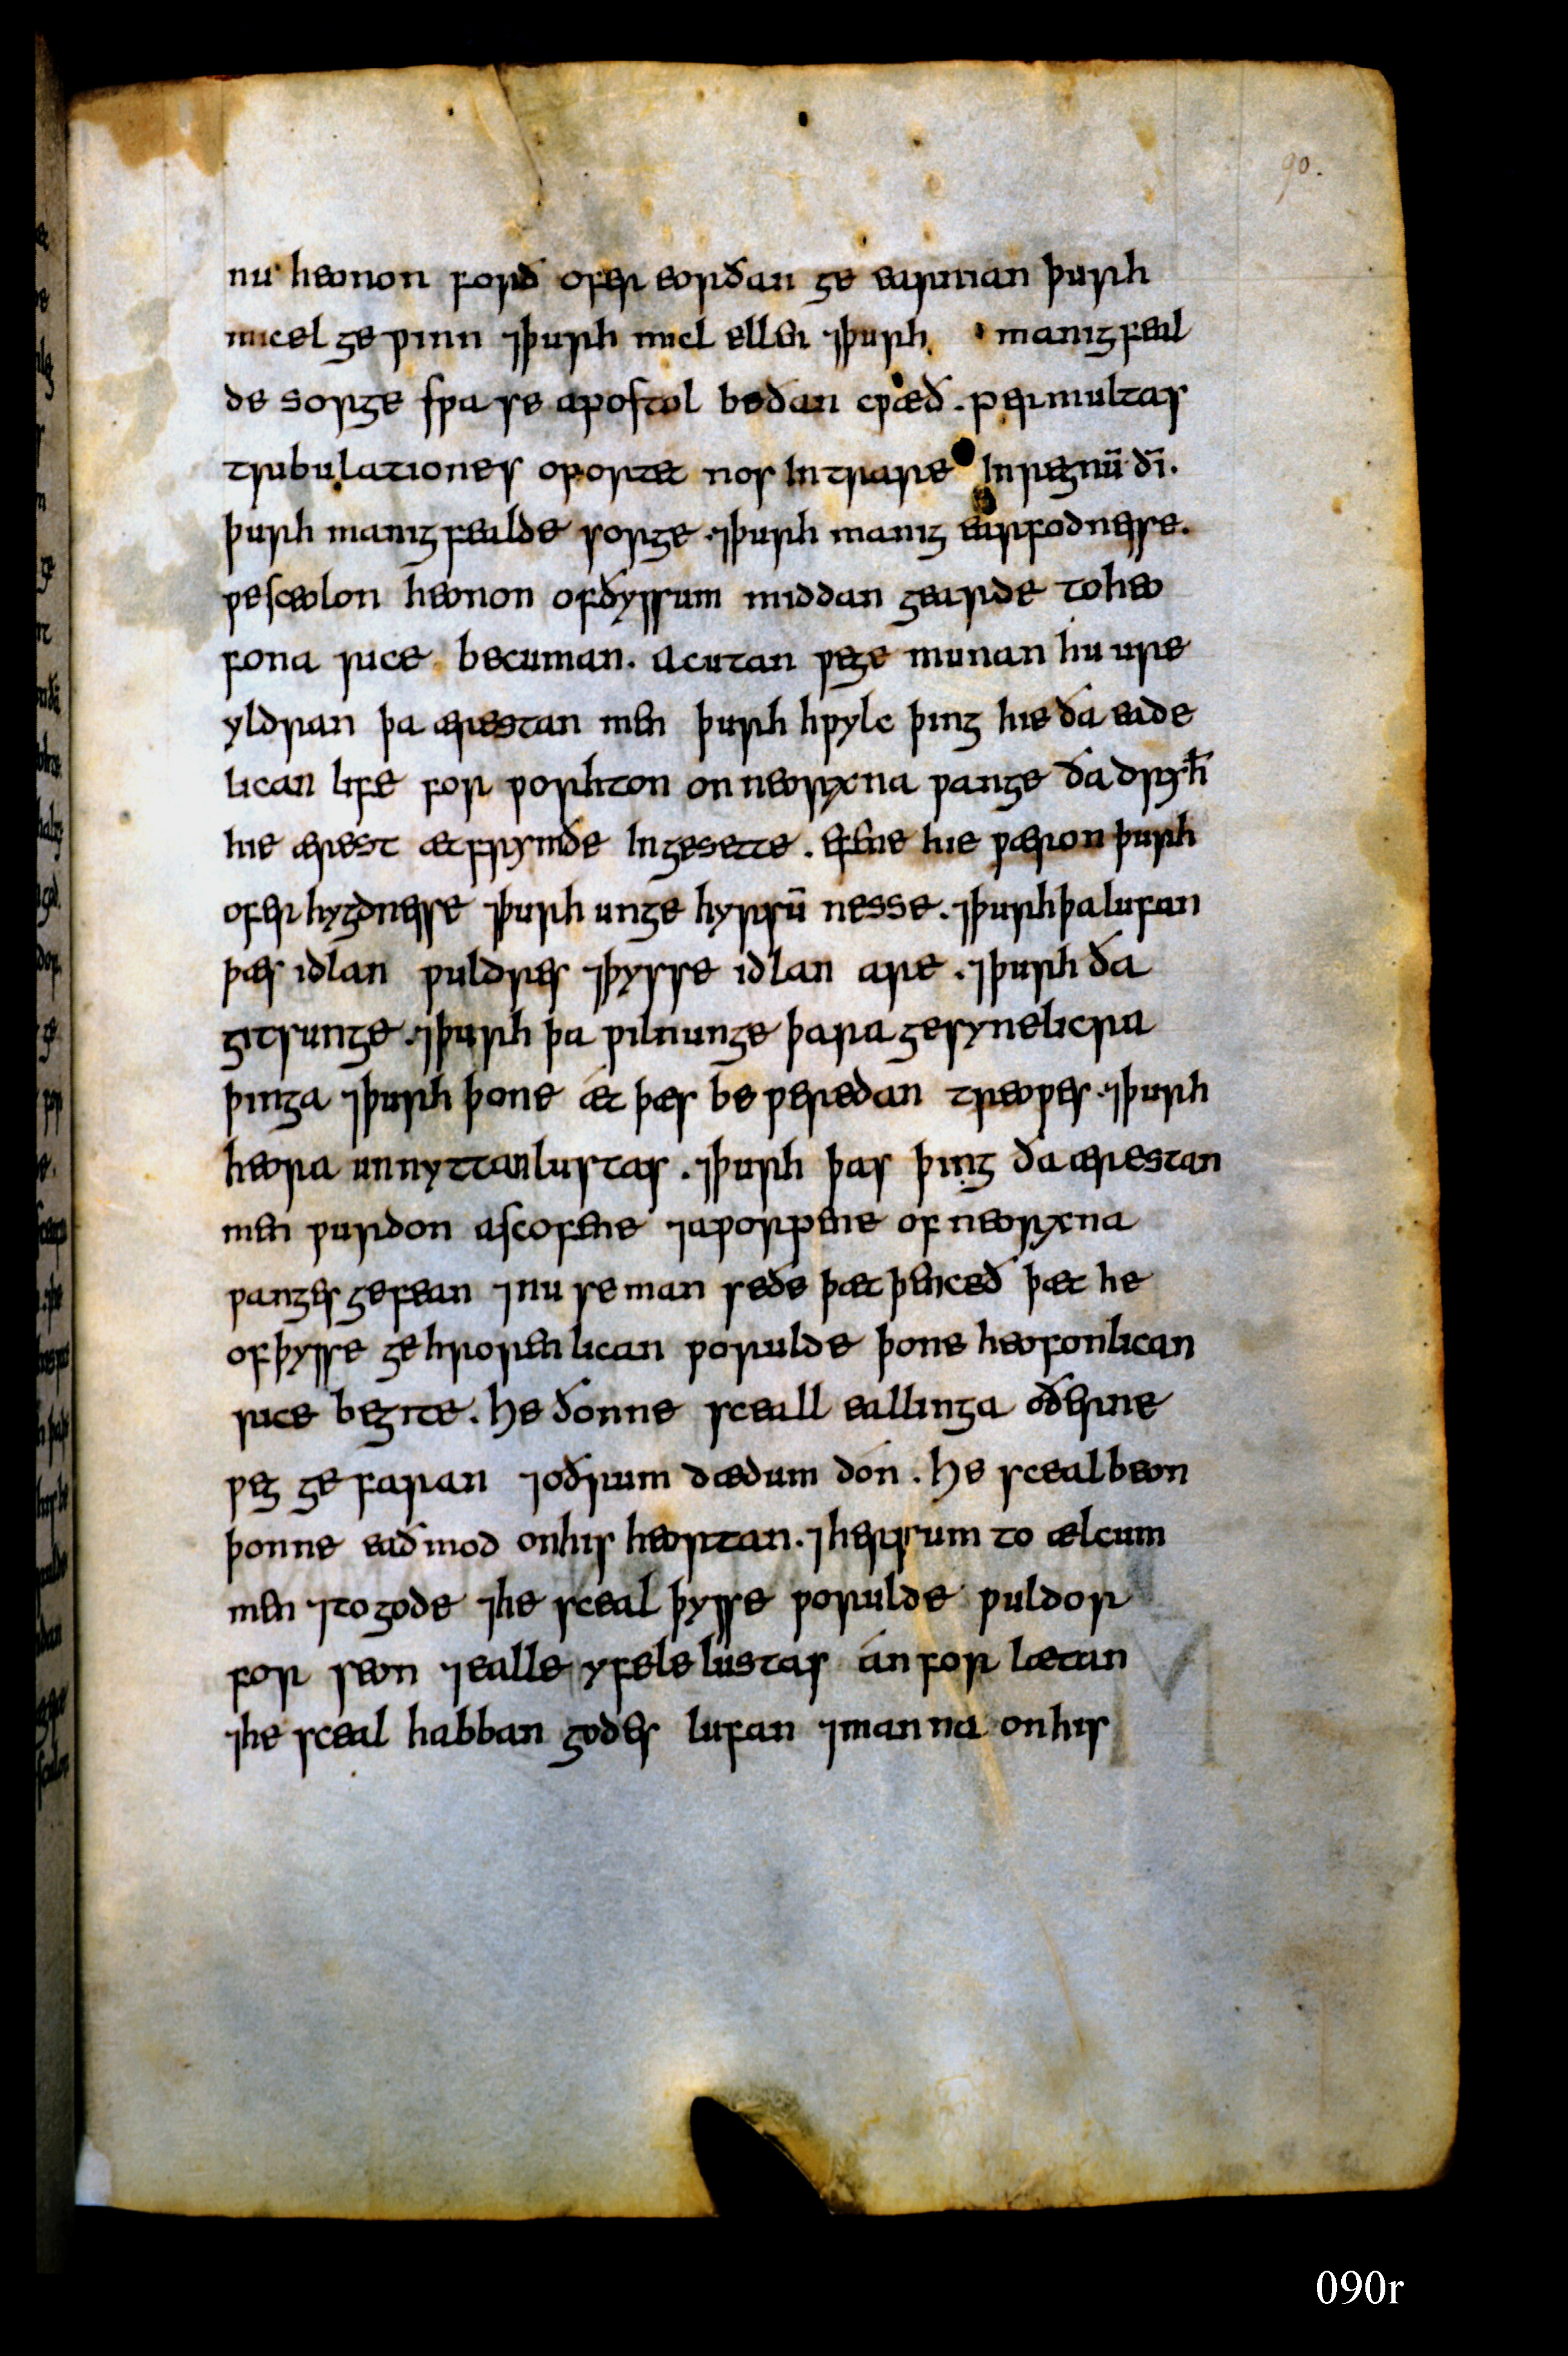 90.
nu heonon forð ofer eorðan ge earnian þurh
micel ge ƿinn ⁊þurh micl ellen ⁊þurh manigfeal
de sorge sƿa se apostol be ðan cƿæð . per multas
tribulationes oportet nos Intrare In regnū dī.
þurh manigfealde sorge .⁊þurh manig earfodnesse.
ƿe sceolon heonon ofðyssum middan gearde to heo
fona rice becuman. Ac utan ƿe ge munan hu ure
yldran þa ærestan men þurh hƿylc þing hie ða eade
lican life for ƿorhton on neorxna ƿange ða dryhт̄
hie ærest æt frymðe In gesette . efne hie ƿæron þurh
ofer hygdnesse ⁊þurh unge hyrsū nesse . ⁊þurh þa lufan
þæs idlan ƿuldres ⁊þysse idlan are . ⁊þurh ða
gitsunge .⁊þurh þa ƿilnunge þara gesynelicra
þinga ⁊þurh þone ǽt þæs be ƿeredan treoƿes .⁊þurh
heora unnyttan lustas . ⁊þurh þas þing ða ærestan
men ƿurdon ascofene ⁊aƿorpene of neorxna
ƿanges gefean ⁊nu se man seðe þæt þenceð þæt he
of þysse ge hrorenlican ƿorulde þone heofonlican
rice begite . he ðonne sceall eallinga oðerne
ƿeg ge faran ⁊oðrum dædum dón . he sceal beon
þonne eaðmod on his heortan . ⁊hersum to ælcum
men ⁊to gode ⁊he sceal þysse ƿorulde ƿuldor
for seon ⁊ealle yfele lustas án for lætan
⁊he sceal habban godes lufan ⁊manna on his
090r